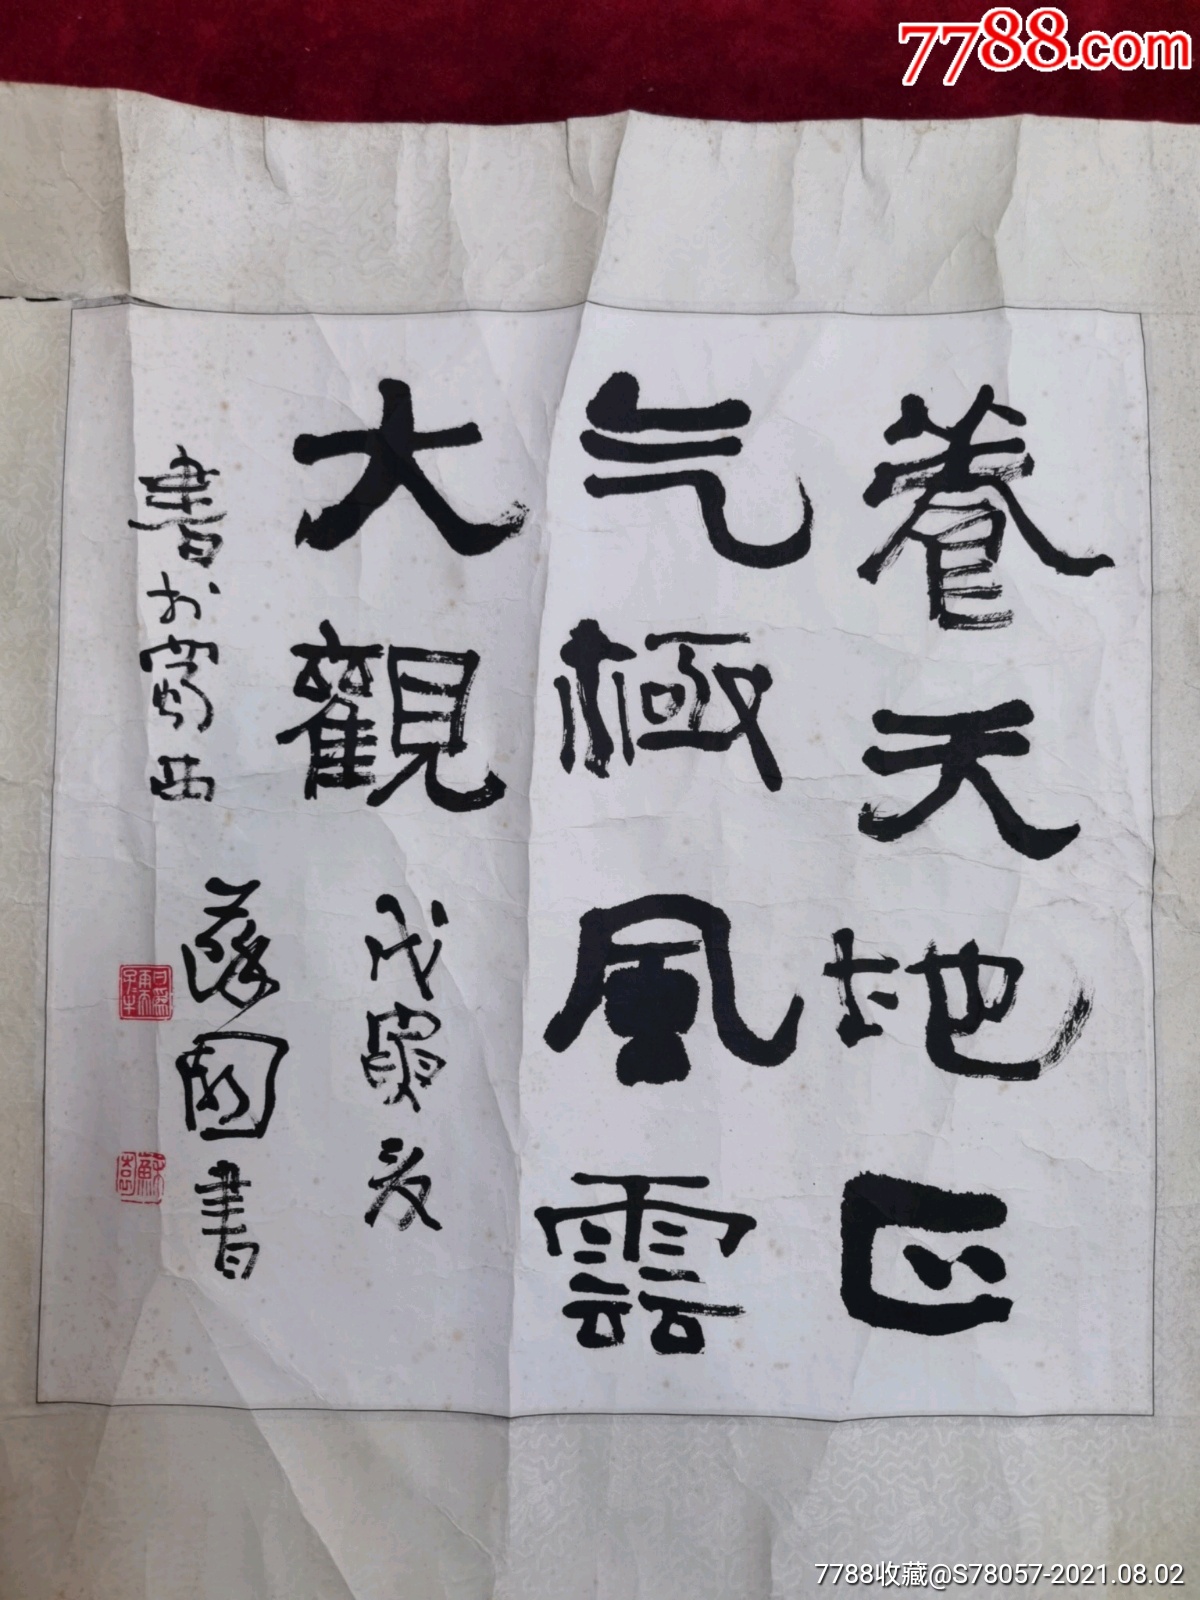 7788.com
養天地正
气極風雲
大觀
戊寅夏
書於寓西
蘇國書
7788收藏@S78057-2021.08.02